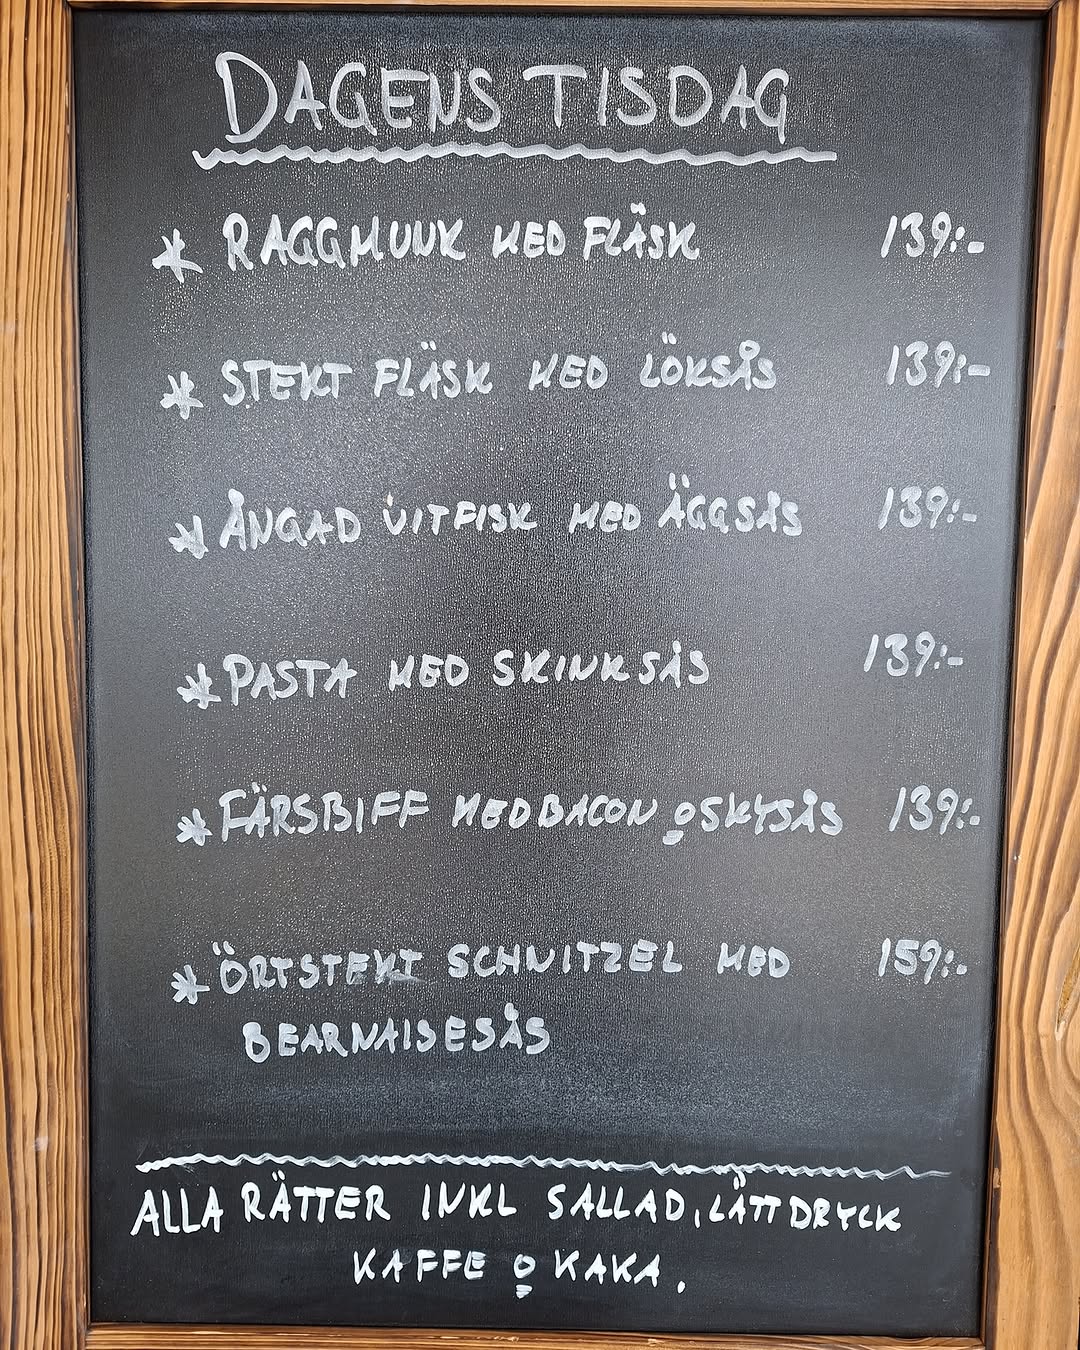 DAGENS TISDAG
* RAGGMUNK MED FLÄSK 139:-
* STEKT FLÄSK MED LÖKSÅS 139:-
* ÅNGAD VITFISK MED ÄGGSÅS 139:-
* PASTA MED SKINKSÅS 139:-
* FÄRSBIFF MED BACON o SKYSÅS 139:-
* ÖRTSTEKT SCHNITZEL MED 159:-
BEARNAISESÅS
ALLA RÄTTER INKL SALLAD, LÄTTDRYCK
KAFFE o KAKA.